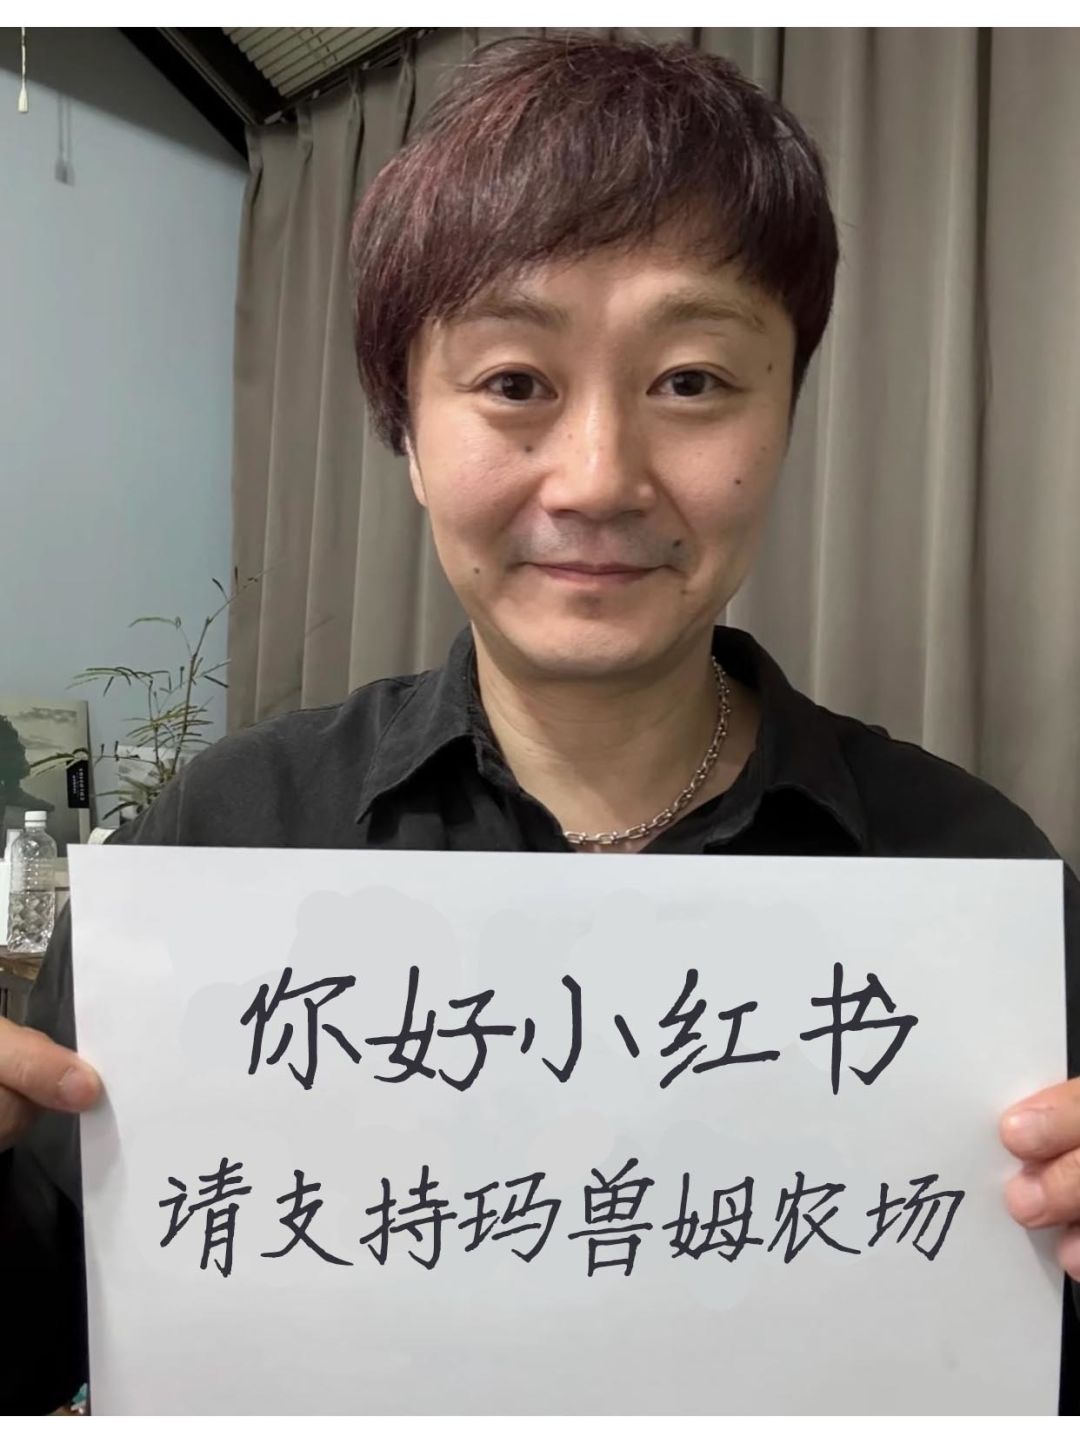 你好小红书
请支持玛兽姆农场